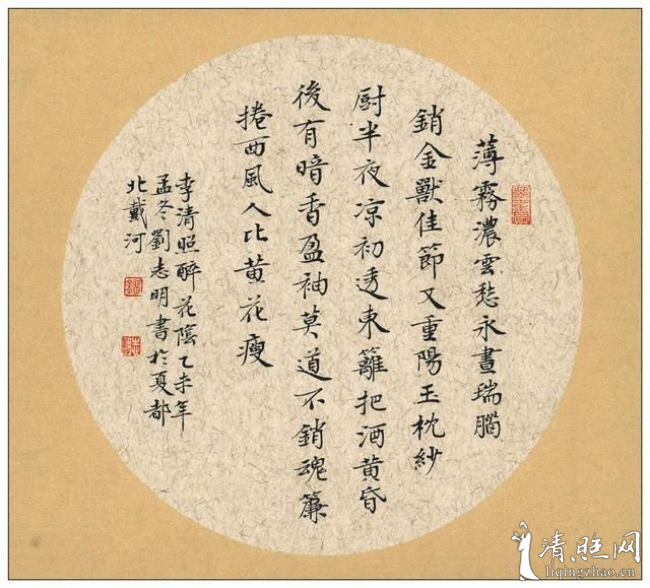 薄霧濃雲愁永晝瑞腦
銷金獸佳節又重陽玉枕紗
厨半夜凉初透東籬把酒黄昏
後有暗香盈袖莫道不銷魂簾
捲西風人比黄花瘦
李清照醉花陰乙未年
孟冬劉志明書於夏都
北戴河
清照网
liqingzhao.cn